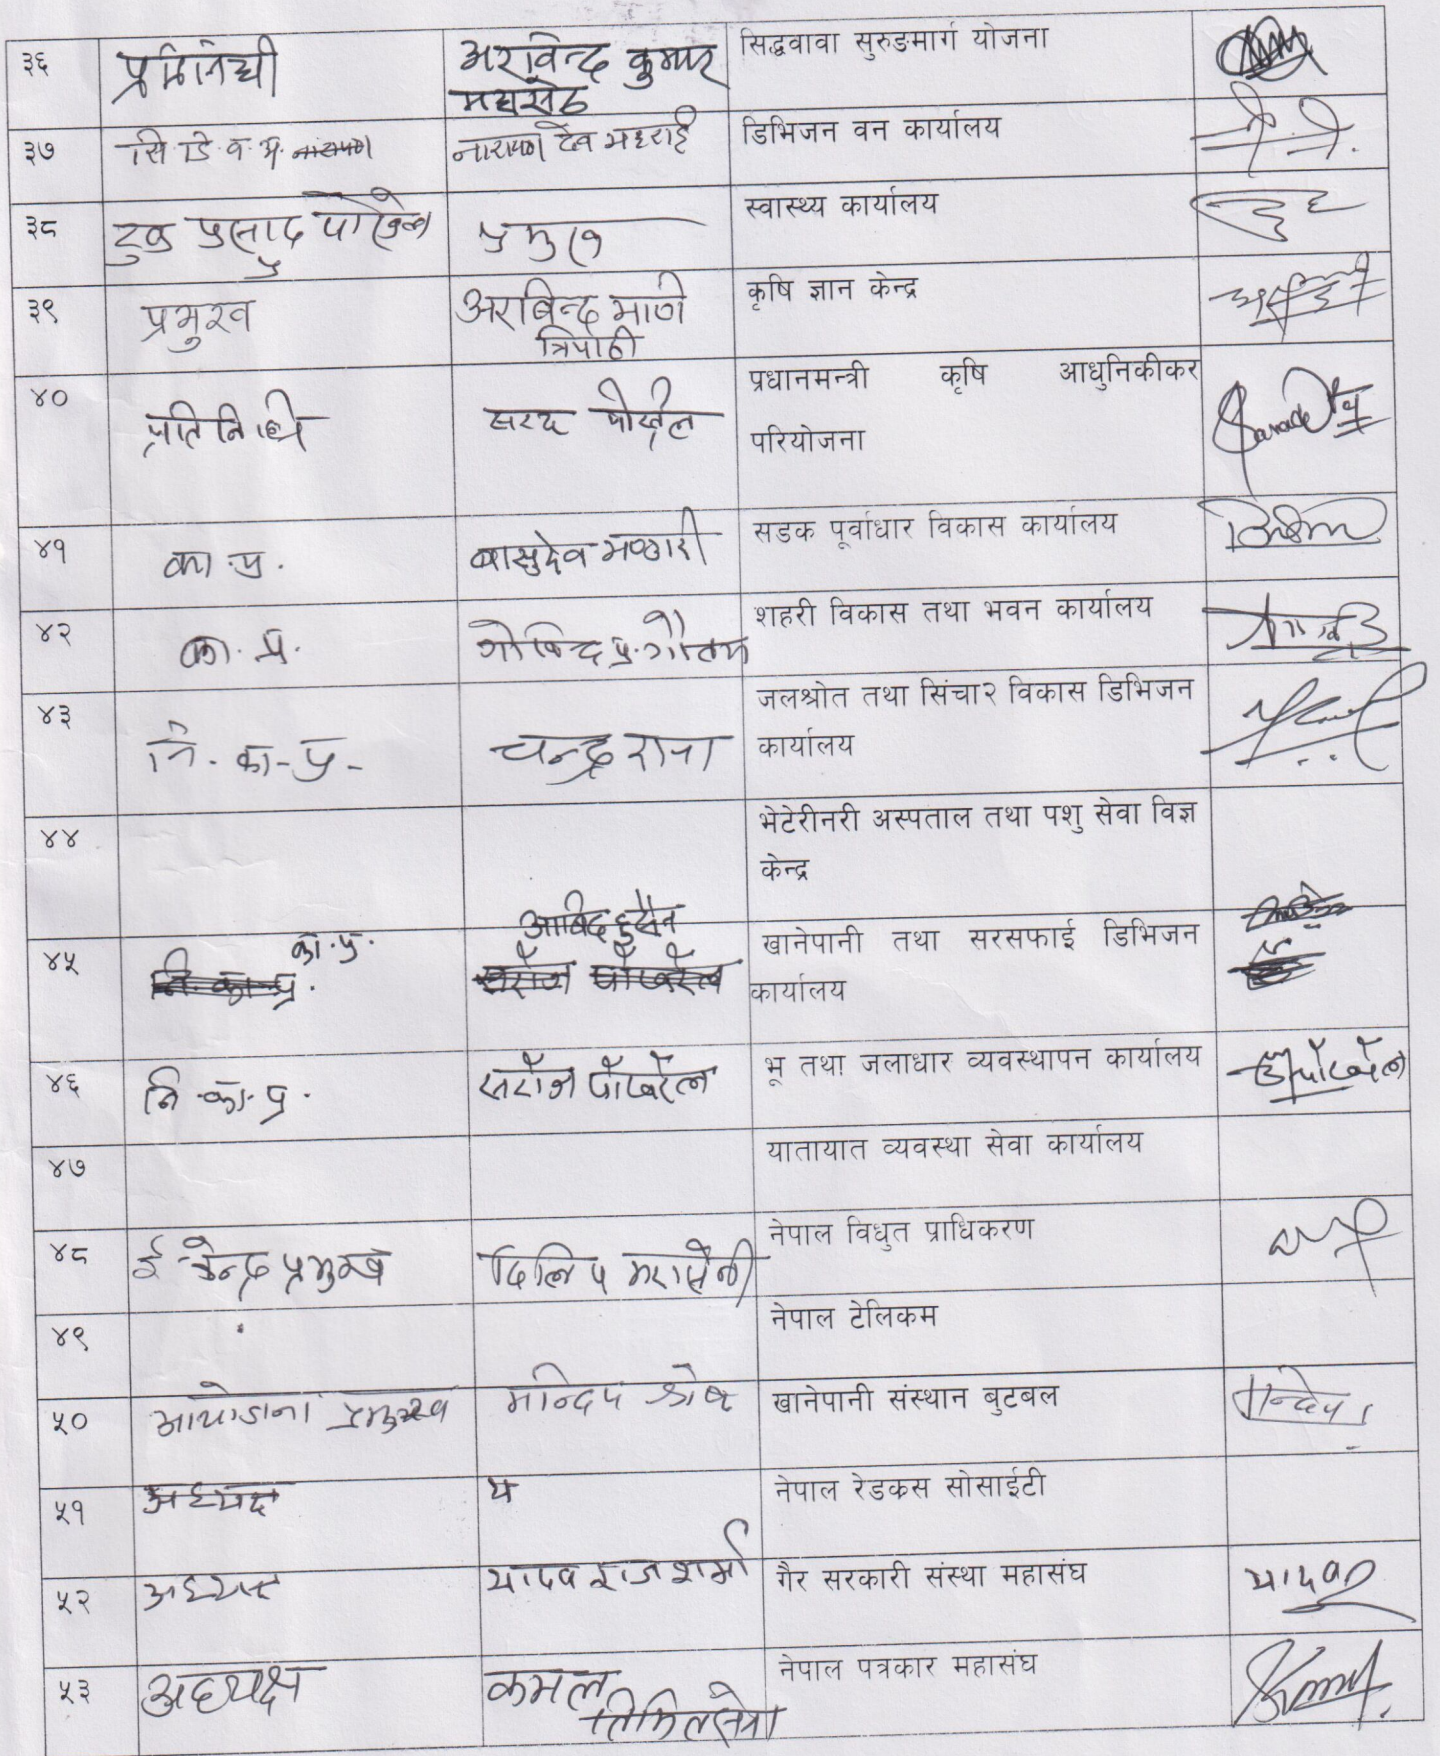 ३६ प्रतिनिधी अरविन्द कुमार सिद्धवावा सुरुङमार्ग योजना
महासेठ
३७ सि डि व अ नारायण नारायण देव भट्टराई डिभिजन वन कार्यालय
३८ टुक प्रसाद पोखरेल प्रमुख स्वास्थ्य कार्यालय
३९ प्रमुख अरबिन्द माणी कृषि ज्ञान केन्द्र
त्रिपाठी
४० प्रतिनिधि सरद पोख्रेल प्रधानमन्त्री कृषि आधुनिकीकर
परियोजना Sarad
४१ का.प्र. बासुदेव भण्डारी सडक पूर्वाधार विकास कार्यालय
४२ का. प्र. गोविन्द प्र. गौतम शहरी विकास तथा भवन कार्यालय
४३ नि. का. प्र. चन्द्र राना जलश्रोत तथा सिंचार विकास डिभिजन
कार्यालय
४४ भेटेरीनरी अस्पताल तथा पशु सेवा विज्ञ
केन्द्र
का.प्र. आबिद हुसैन
४५ नि. का. प्र. सरोज पोखरेल खानेपानी तथा सरसफाई डिभिजन
कार्यालय
४६ नि. का. प्र. सरोज पोखरेल भू तथा जलाधार व्यवस्थापन कार्यालय
४७ यातायात व्यवस्था सेवा कार्यालय
४८ ई-केन्द्र प्रमुख दिलिप मरासेनी नेपाल विधुत प्राधिकरण
४९ नेपाल टेलिकम
५० आयोजाना प्रमुख मन्दिप श्रेष्ठ खानेपानी संस्थान बुटबल
५१ अध्यक्ष य नेपाल रेडकस सोसाईटी
५२ अध्यक्ष यादव राज शर्मा गैर सरकारी संस्था महासंघ यादव
५३ अध्यक्ष कमल नेपाल पत्रकार महासंघ
तिमिल्सेना